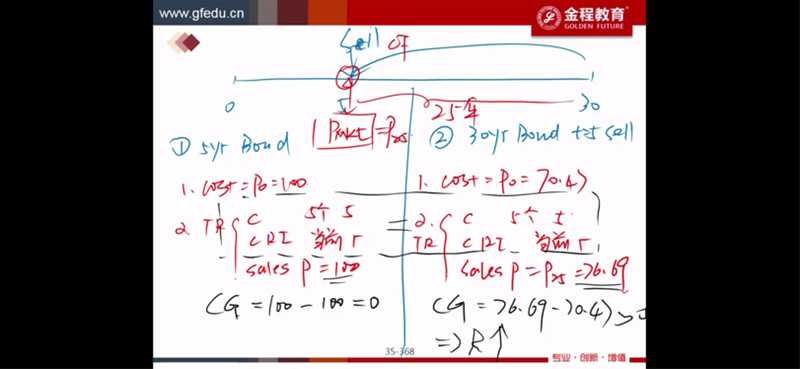 www.gfedu.cn
金程教育
GOLDEN FUTURE
Sell CF
0 5 25年 30
① 5yr Bond
| Pmkt | = P25
② 30yr Bond t=5 sell
1. cost = P0 = 100
1. cost = P0 = 70.47
2. TR { C 5个 5
CRI 当前 r
sales P = 100
= 2. TR { C 5个 5
CRI 当前 r
sales P = P25 = 76.69
CG = 100 - 100 = 0
CG = 76.69 - 70.47 >
⇒ R ↑
35-368
专业·创新·增值